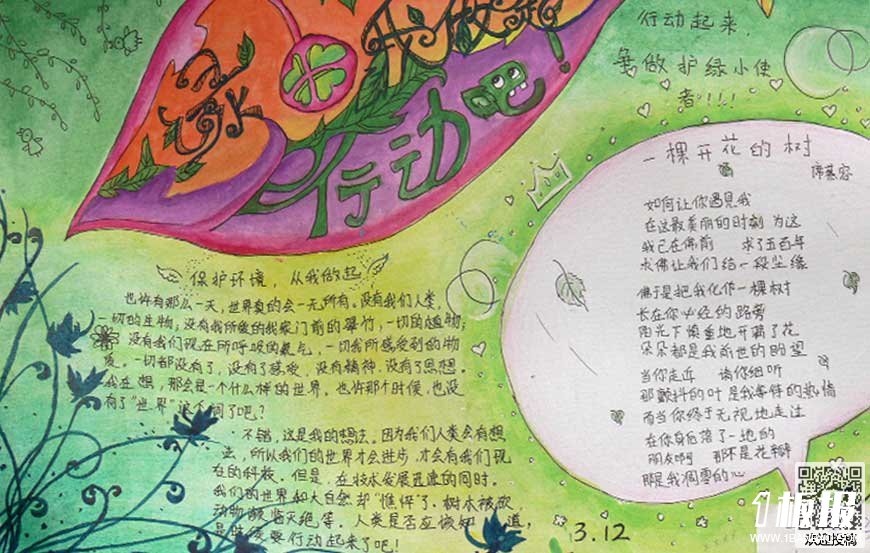 行动起来,
争做护绿小使
者!!!
行动吧!
一棵开花的树
席慕容
如何让你遇见我
在这最美丽的时刻 为这
我已在佛前 求了五百年
求佛让我们结一段尘缘
佛于是把我化作一棵树
长在你必经的路旁
阳光下慎重地开满了花
朵朵都是我前世的盼望
当你走近 请你细听
那颤抖的叶是我等待的热情
而当你终于无视地走过
在你身后落了一地的
朋友啊 那不是花瓣
那是我凋零的心
保护环境,从我做起
也许有那么一天,世界真的会一无所有。没有我们人类,
一切的生物;没有我所爱的我家门前的翠竹,一切的植物;
没有我们现在所呼吸的氧气,一切我所感受到的物
质。一切都没有了,没有了感受,没有精神,没有了思想。
我在想,那会是一个什么样的世界。也许那个时候,也没
有了"世界"这个词了吧?
不错,这是我的想法。因为我们人类会有想
法,所以我们的世界才会进步,才会有我们现
在的科技。但是,在技术发展迅速的同时。
我们的世界和大自然却"憔悴了.树木被砍,
动物濒临灭绝等。人类是否应该知道,
要行动起来了吧!
3.12
1板报
欢迎投稿